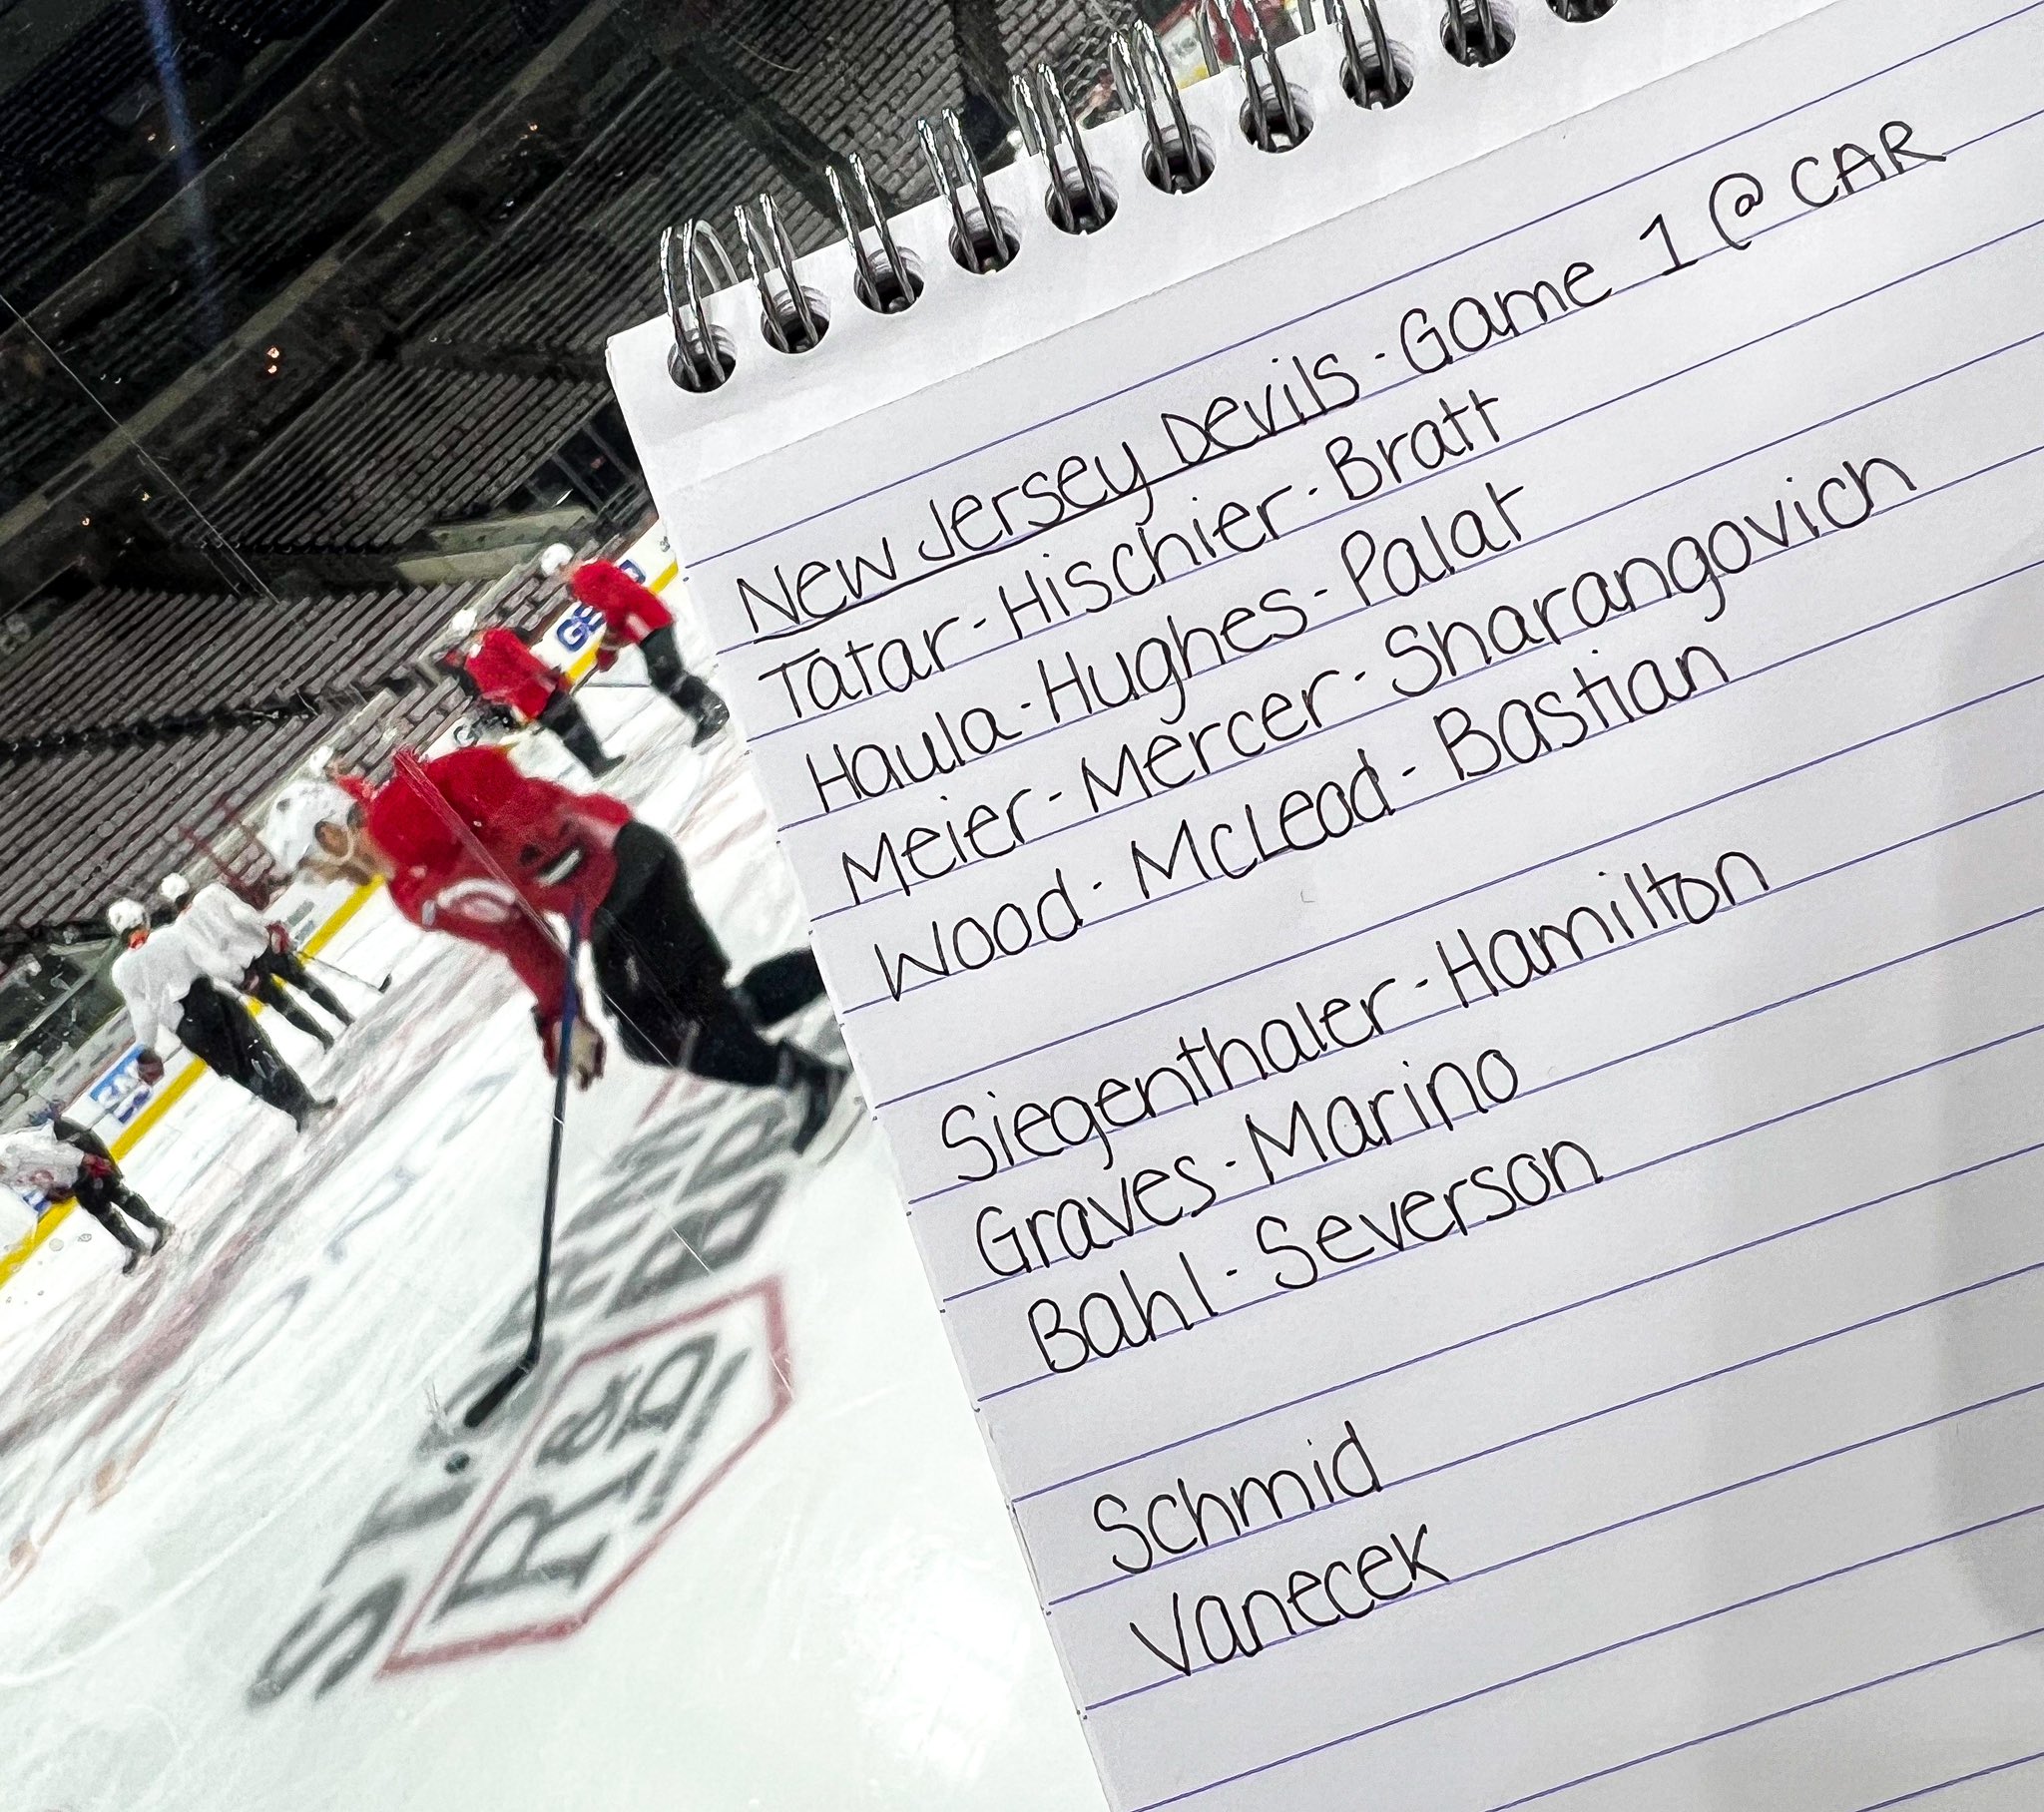 New Jersey Devils - Game 1 @ CAR
Tatar - Hischier - Bratt
Haula - Hughes - Palat
Meier - Mercer - Sharangovich
Wood - McLeod - Bastian
Siegenthaler - Hamilton
Graves - Marino
Bahl - Severson
Schmid
Vanecek
R&D